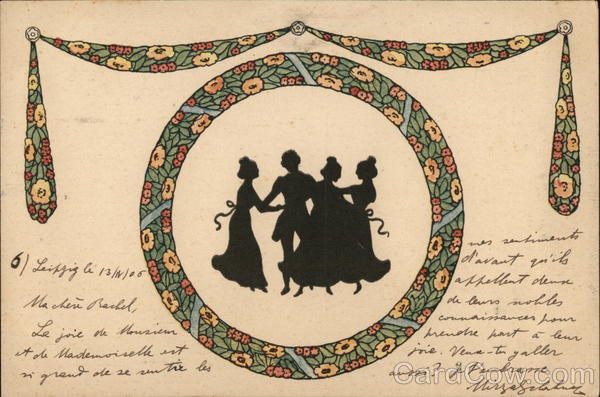 6) Leipzig le 13/IV/06
Ma chère Rachel,
La joie de Monsieur
et de Mademoiselle est
si grand de se sentir les
mes sentiments
d'avant qu'ils
appellent deux
de leurs nobles
connaissances pour
prendre part à leur
joie. Veux-tu y aller
aussi? Je t'embrasse
CardCow.com